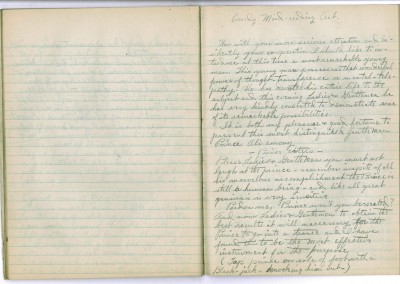 Comedy Mind-reading Act.
Now with your most serious attention and
I should like to
at this time a most remarkable young
man. This young man possesses that wonderful
power of thought transference or mental-tele-
pathy. He has devoted his entire life to the
subject and this evening Ladies & Gentlemen he
has very kindly consented to demonstrate some
of its remarkable possibilities.
It is both my pleasure and good fortune to
present this most distinguished gentleman
Prince Ali
— Prince Enters —
Please Ladies & Gentlemen you must not
laugh at the prince - remember in spite of all
his marvelous accomplishments the Prince is
still a human being - and like all great
is very sensitive
Prince won't you be seated?
And now Ladies & Gentlemen to obtain the
best results it will necessary for the
Prince to go into a trance and I have
found this to be the most effective
instrument for the purpose
(Taps prince on side of foot with a
Black-jack - knocking him out -)